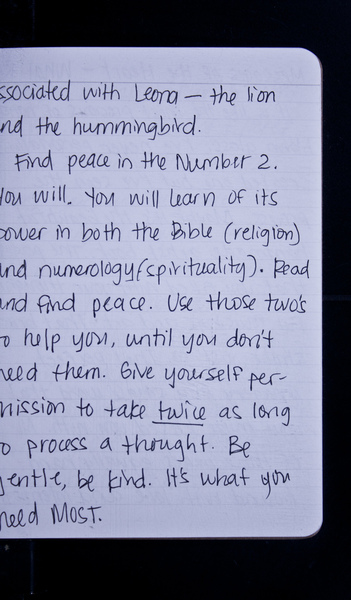 ssociated with Leona – the lion
nd the hummingbird.
Find peace in the Number 2.
You will. You will learn of its
power in both the Bible (religion)
and numerology (spirituality). Read
and find peace. Use those two's
to help you, until you don't
need them. Give yourself per-
mission to take twice as long
to process a thought. Be
gentle, be kind. It's what you
need MOST.